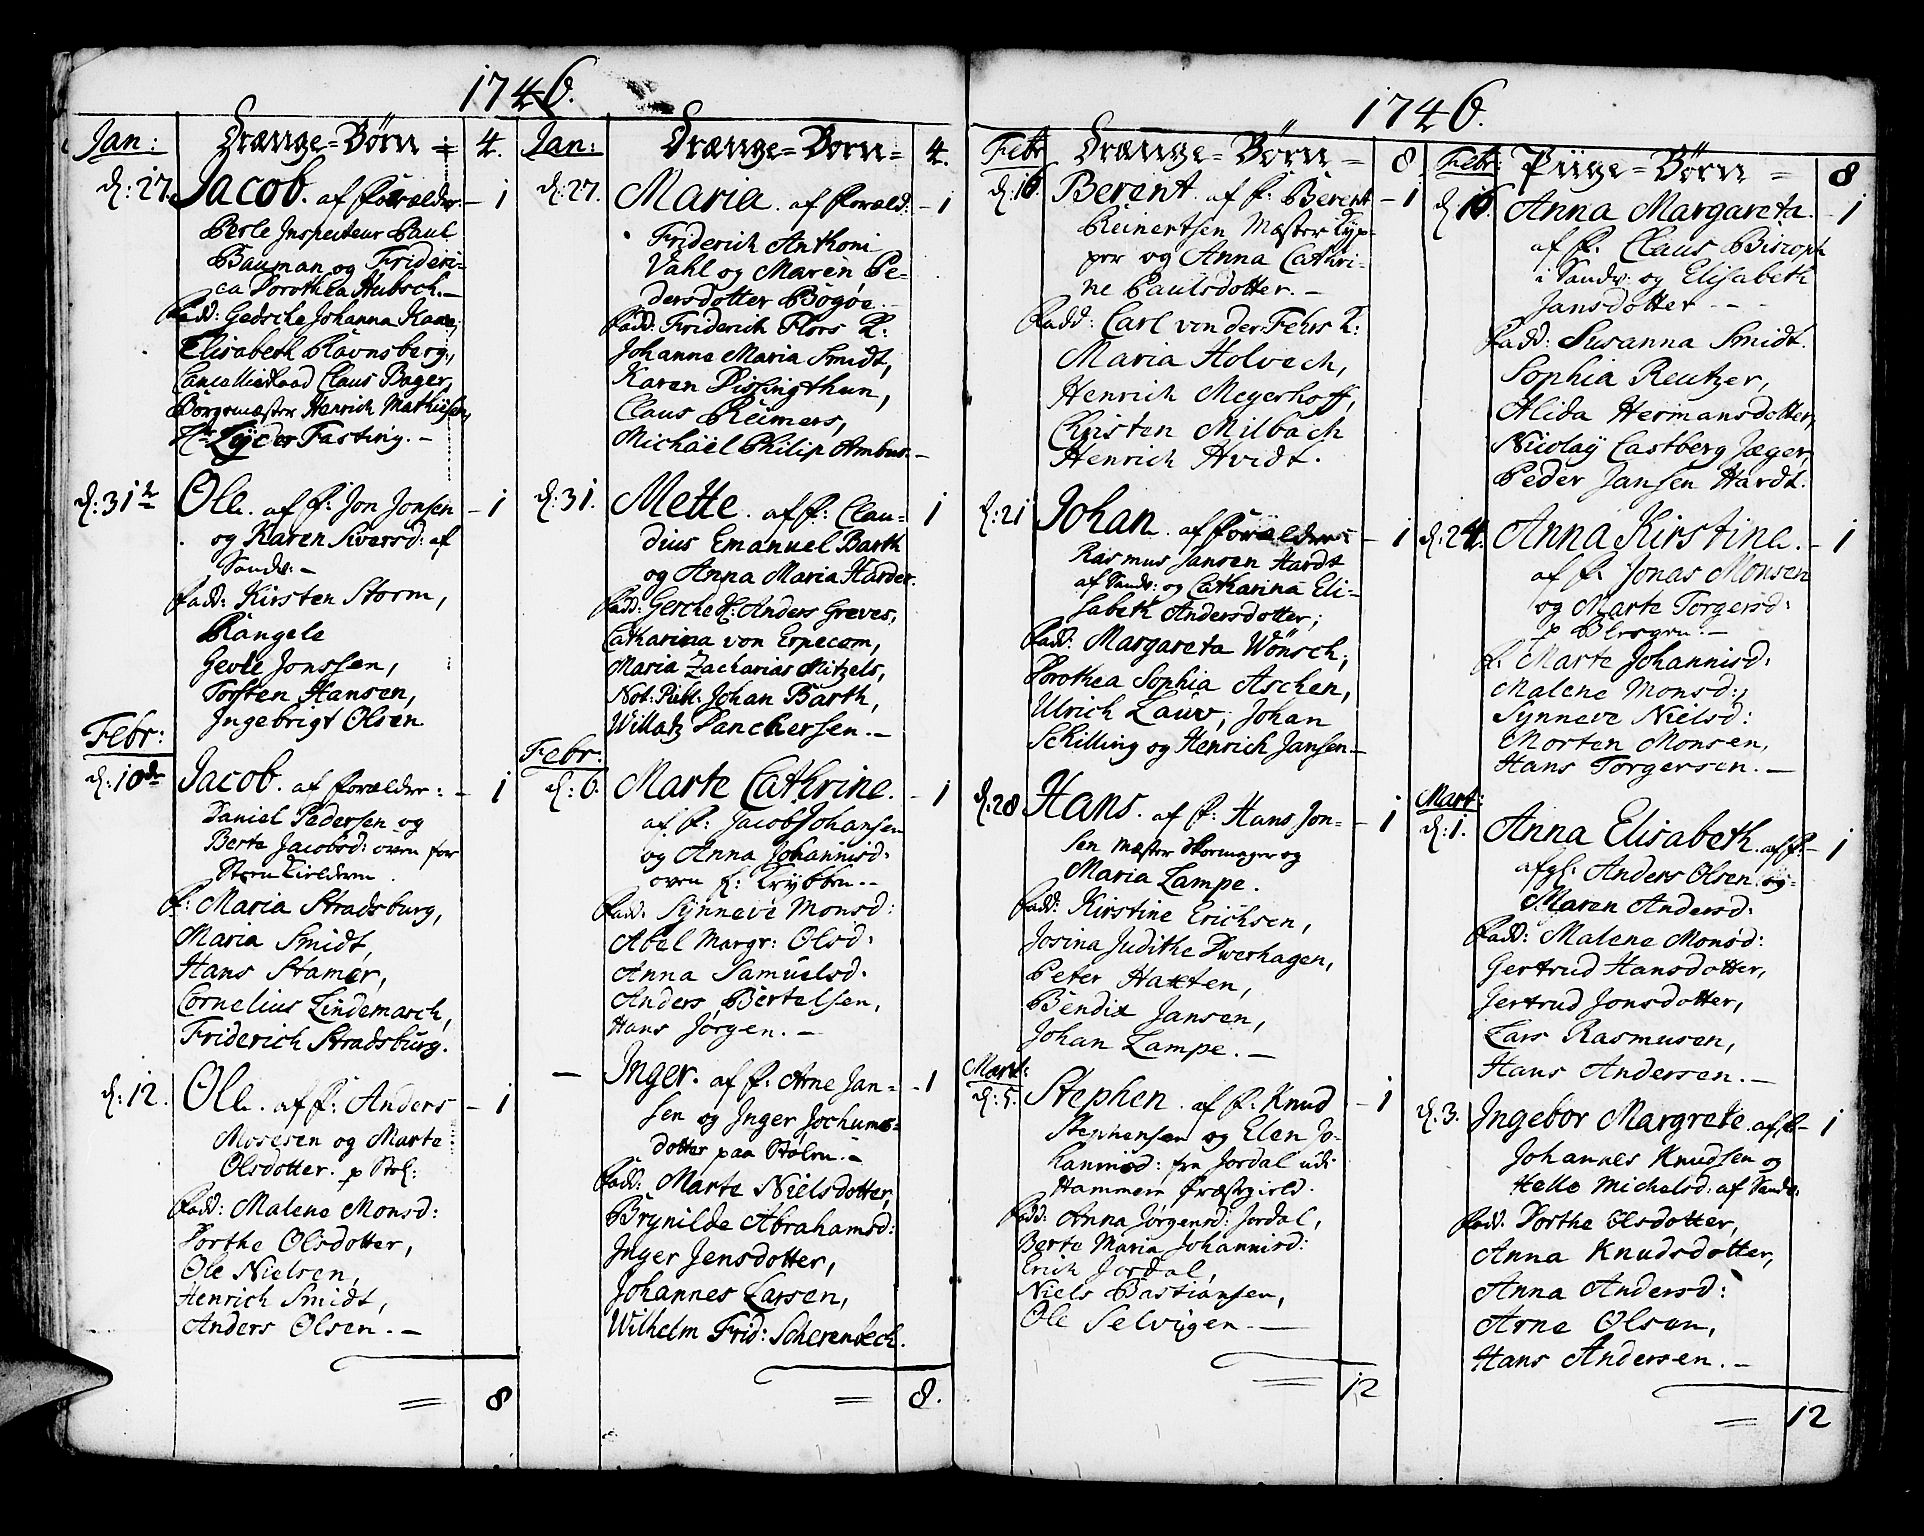 1746.
Jan: Drænge=Børn = 4.
d: 27. Jacob. af Forældre. – 1
Perle Inspecteur Paul
Bauman og Frideri-
ca Dorothea Hubsch. –
Fadd: Gedsche Johanna Kaae,
Elisabeth Ravnsberg,
Cancellieraad Claus Bager,
Borgemæster Henrich Mathiesen,
Hr Lyder Fasting. –
d: 31te Ole. af F: Jon Jonsen – 1
og Karen Siversd: af
Sandv: –
Fadd: Kirsten Storm,
Rangele
Gevle Jonssen,
Torsten Hansen,
Ingebrigt Olsen
Febr:
d: 10de Jacob. af Forældre: – 1
Daniel Pedersen og
Berte Jacobsd: oven for
F: Maria Stradsburg,
Maria Smidt,
Hans Stamer,
Cornelius Lindemarch,
Friderich Stradsburg.
d: 12. Ole. af F: Anders – 1
Mosesen og Marte
Olsdotter. p Stol:
Fadd: Malene Monsd:
Dorthe Olsdotter,
Ole Nielsen,
Henrich Smidt,
Anders Olsen. –
= 8
Jan: Drænge=Børn= 4.
d: 27. Maria. af Foræld: – 1
Friderich Anthoni
Vahl og Maren Pe-
dersdotter Bøgøe. –
Fadd: Friderich Flors K:
Johanna Maria Smidt,
Karen Dissingthun,
Claus Reimers,
Michael Philip Ambus. –
d: 31. Mette. af F: Clau- 1
dius Emanuel Barth
og Anna Maria Harder.
Fadd: Gerche K: Anders Greves,
Catharina von Erpecom,
Maria Zacharias Mitzels,
Not: Publ: Johan Barth,
Willatz Danckersen. –
Febr:
d: 6. Marte Cathrine. – 1
af F: Jacob Johansen
og Anna Johannisd:
oven f: Krybben. –
Fadd. Synneve Monsd:
Abel Margr: Olsd:
Anna Samuelsd.
Anders Bertelsen,
Hans Jørgen. –
– Inger. af F: Arne Jan- – 1
sen og Inger Jochums-
dotter paa Stølen. –
Fadd: Marte Nielsdotter,
Brynilde Abrahamsd:
Inger Jensdotter,
Johannes Larsen,
Wilhelm Frid: Scherenbech.
= 8.
1746.
Febr Drænge=Børn = 8.
d: 16. Berent. af F: Berent – 1
Reinertsen Mæster Kyp-
per og Anna Cathri-
ne Paulsdotter. –
Fadd: Carl von der Fehrs K:
Maria Holvech,
Henrich Meyerhoff,
Christen Milbach
Henrich Hvidt.
d: 21 Johan. af Forældrene – 1
Rasmus Jansen Hardt
af Sandv: og Catharina Eli-
sabeth Andersdotter;
Fadd: Margareta Wönsch,
Dorothea Sophia Aschen,
Ulrich Lauv, Johan
Schilling og Henrich Jansen –
d: 28 Hans. af F: Hans Jon- – 1
sen Mæster Skormager og
Maria Lampe.
Fadd: Kirstine Erichsen,
Josina Judithe Dverhagen,
Peter Haxten,
Bendix Jansen,
Johan Lampe. –
Mart:
d: 5. Stephen. af F: Knud – 1
Stephensen og Elen Jo-
hannisd: fra Jordal udi
Hammern Præstgield.
Fadd: Anna Jørgensd: Jordal,
Berte Maria Johannisd:
Erich Jordal,
Niels Bastiansen,
Ole Selvigen. –
= 12
Febr: Piige=Børn = 8
d. 16. Anna Margareta. – 1
af F: Claus Biscoph
i Sandv: og Elisabeth
Jansdotter – –
Fadd: Susanna Smidt.
Sophia Reutzer,
Alida Hermansdotter,
Nicolay Castberg Jæger,
Peder Jansen Hardt.
d. 24. Anna Kirstine. – 1
af F. Jonas Monsen
og Marte Torgersd:
F. Marte Johannisd:
Malene Monsd:,
Synneve Nielsd:
Morten Monsen,
Hans Torgersen. –
Mart:
d: 1. Anna Elisabeth. af F: – 1
afgl: Anders Olsen og
Maren Andersd:
Fadd: Malene Monsd:
Gertrud Hansdotter,
Gertrud Jonsdotter,
Lars Rasmusen,
Hans Andersen. –
d: 3. Ingebor Margrete. af F – 1
Johannes Knudsen og
Helle Michelsd: af Sandv:
Fadd. Dorthe Olsdotter,
Anna Knudsdotter,
Anna Andersd:
Arne Olsen,
Hans Andersen. –
= 12